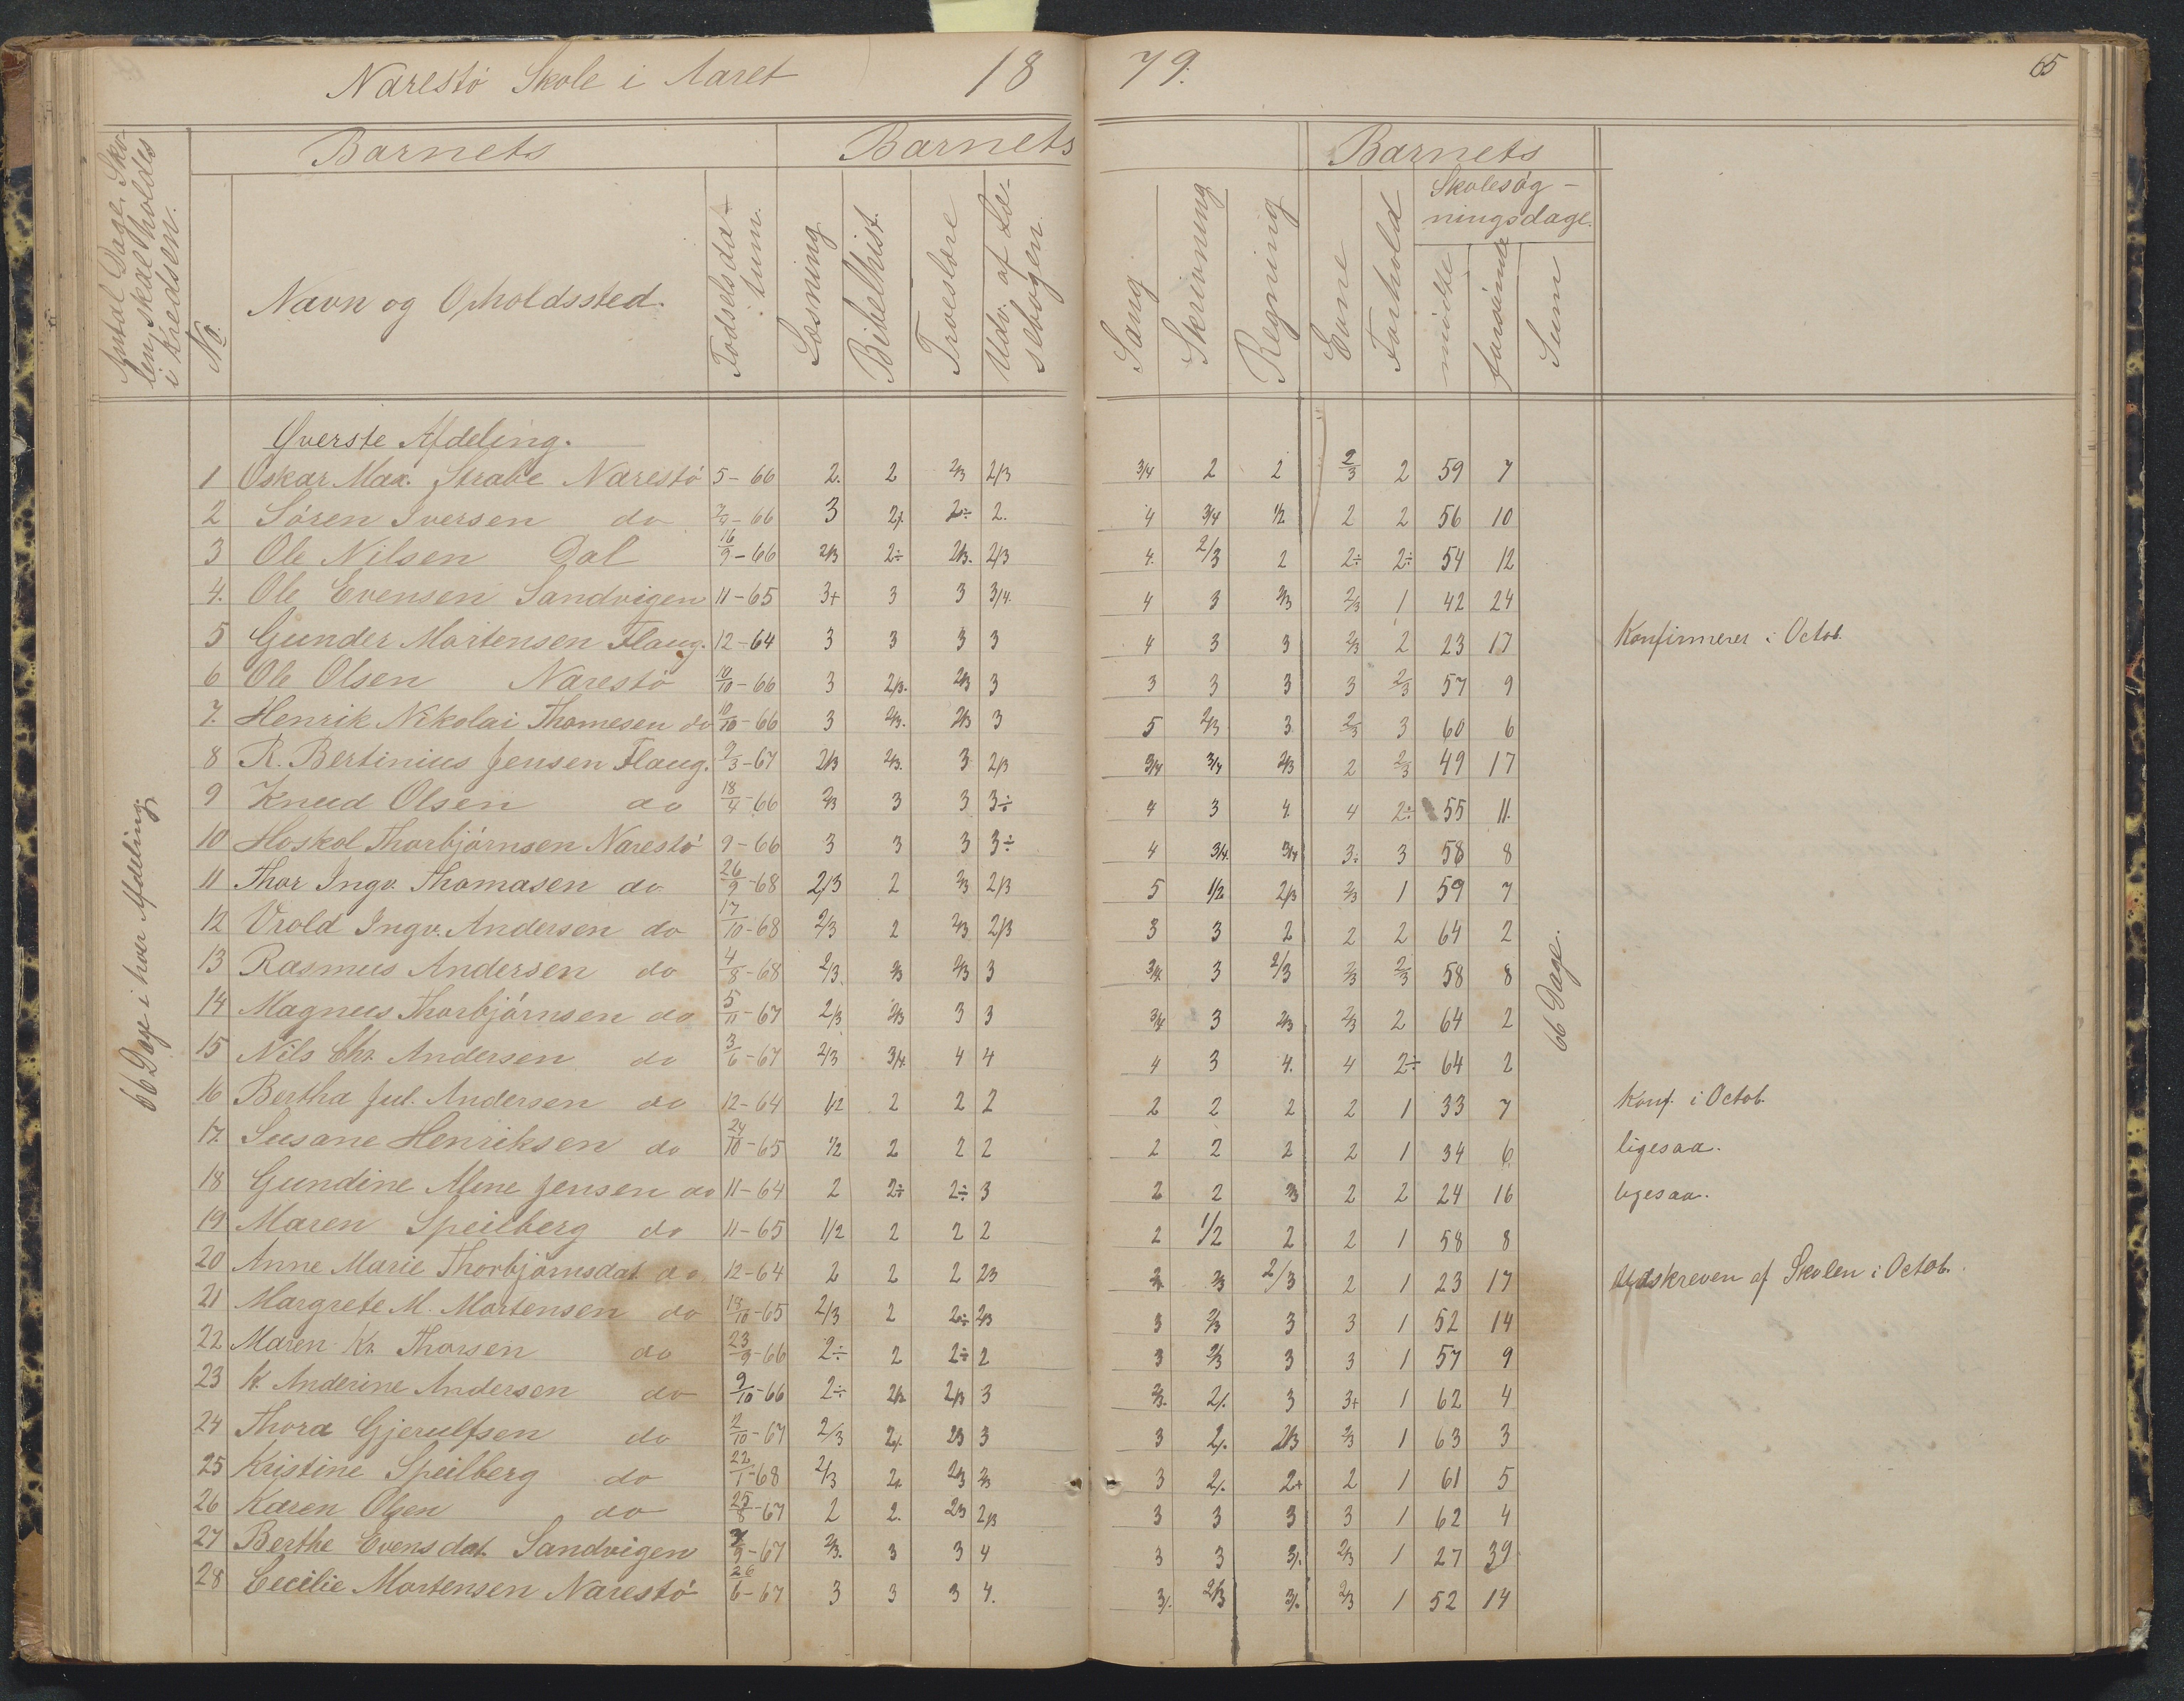 Narestö Skole i Aaret 1879.
65
Antal Dage, Skolen skal holdes i Kredsen.
No.
Barnets
Navn og Opholdssted.
Fødselsdatum.
Barnets
Læsning
Bibelhist.
Troeslære
Udv. af Læsebogen
Sang
Skrivning
Regning
Barnets
Evne
Forhold
Skolesøgningsdage.
mødte
forsömte
Sum
66 Dage i hver Afdeling.
66 Dage.
Øverste Afdeling.
1 Oskar Max. Strabe Narestö 5-66 2. 2 2/3 2/3 3/4 2 2 2/3 2 59 7
2 Sören Iversen do 66 3 2 2÷ 2. 4 3/4 1/2 2 2 56 10
3 Ole Nilsen Dal 16/9-66 2/3 2÷ 2/3. 2/3 4. 2/3 2 2÷ 2÷ 54 12
4. Ole Evensen Sandvigen 11-65 3+ 3 3 3/4. 4 3 2/3 2/3 1 42 24
5 Gunder Mortensen Flaug. 12-64 3 3 3 3 4 3 3 2/3 2 23 17 Konfirmeret i Octob.
6 Ole Olsen Narestö 18/10-66 3 2/3. 2/3 3 3 3 3 3 2/3 57 9
7. Henrik Nikolai Thomesen do 10/10-66 3 2/3. 2/3 3 5 2/3 3 2/3 3 60 6
8 R. Bertinius Jensen Flaug. 2/3-67 2/3 2/3. 3 2/3 3/4 3/4 2/3 2 2/3 49 17
9 Knud Olsen do 18/4-66 2/3 3 3 3÷ 4 3 4. 4 2÷ 55 11.
10 Hoskol Thorbjörnsen Narestö 9-66 3 3 3 3÷ 4 3/4. 3/4 3÷ 3 58 8
11 Thor Ingv. Thomasen do 26/9-68 2/3 2 2/3 2/3 5 1/2 2/3 2/3 1 59 7
12 Vrold Ingv. Andersen do 17/10-68 2/3 2 2/3 2/3 3 3 2 2 2 64 2
13 Rasmus Andersen do 4/8-68 2/3. 2/3 2/3 3 3/4. 3 2/3 2/3 2/3 58 8
14 Magnus Thorbjörnsen do 5/11-67 2/3 2/3 3 3 3/4 3 2/3 2/3 2 64 2
15 Nils Chr. Andersen do 3/6-67 2/3 3/4. 4 4 4 3 4. 4 2÷ 64 2
16 Bertha Jul. Andersen do 12-64 1/2 2 2 2 2 2 2 2 1 33 7 Konf. i Octob.
17. Susane Henriksen do 24/10-65 1/2 2 2 2 2 2 2 2 1 34 6 ligesaa.
18 Gundine Alene Jensen do 11-64 2 2÷ 2÷ 3 2 2 2/3 2 2 24 16 ligesaa.
19 Maren Speilberg do 11-65 1/2 2 2 2 2 1/2 2 2 1 58 8
20 Anne Marie Thorbjörnsdat. do 12-64 2 2 2 2/3 2/3 2/3 2 1 23 17 Udskreven af Skolen i Octob.
21 Margrete M. Mortensen do 18/10-65 2/3 2 2÷ 2/3 3 2/3 3 3 1 52 14
22 Maren Kr. Thorsen do 23/9-66 2÷ 2 2÷ 2 3 2/3 3 3 1 57 9
23 K. Anderine Andersen do 9/10-66 2÷ 2/3 3 2/3. 2/. 3 3+ 1 62 4
24 Thora Gjerulfsen do 2/10-67 2/3 2/. 2/3 3 3 2/. 2/3 2/3 1 63 3
25 Kristine Speilberg do 22/1-68 2/3 2/. 2/3 2/3 3 2/. 2+ 2 1 61 5
26 Karen Olsen do 25/8-67 2 2. 2/3 2/3 3 3 3 3 1 62 4
27 Berthe Evensdat. Sandvigen 67 2/3. 3 3 4 3 3 3/. 2/3 1 27 39
28 Cecilie Mortensen Narestö 26/6-67 3 3 3 4. 3/. 2/3 3/. 2/3 1 52 14